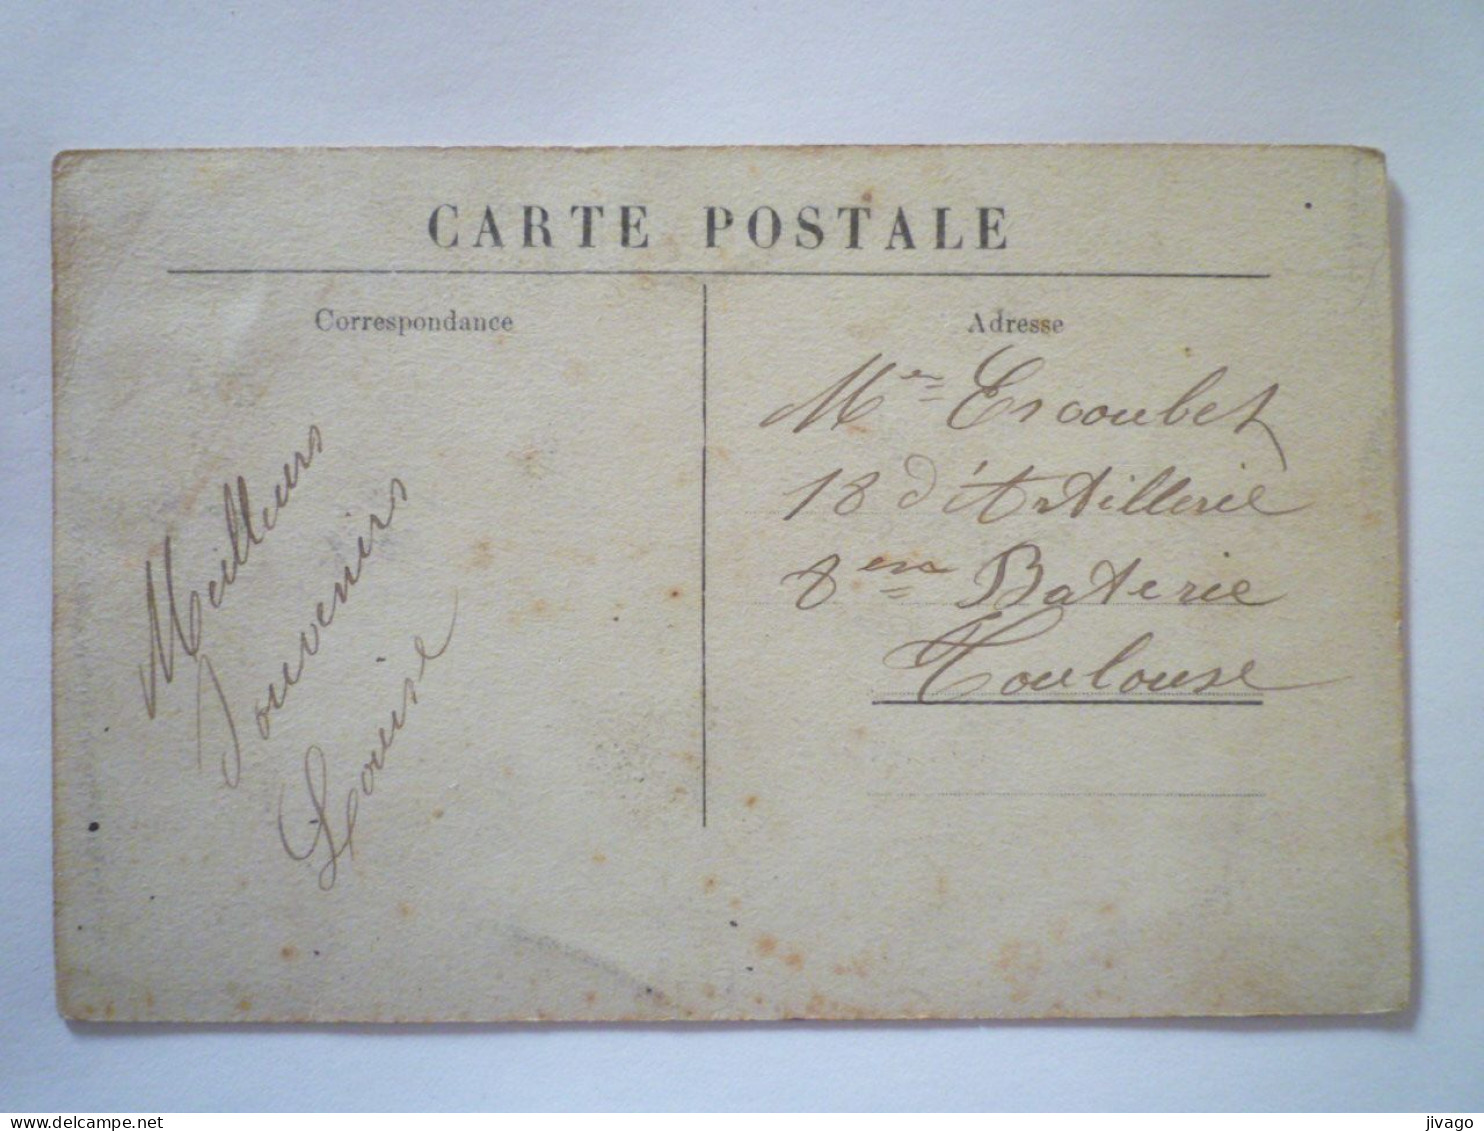 CARTE POSTALE
Correspondance
Meilleurs
Souvenirs
Louise
Adresse
Mer Escoubet
18 d'Artillerie
8em Baterie
Toulouse
delcampe.net
jivago